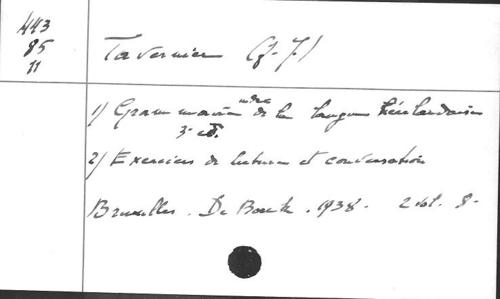 443
85
11
Tavernier (J-J.)
1) Grammaire de la langue néerlandaise
3e éd.
2) Exercices de lecture et conversation
Bruxelles. De Boeck. 1938. 2 vol. 8-